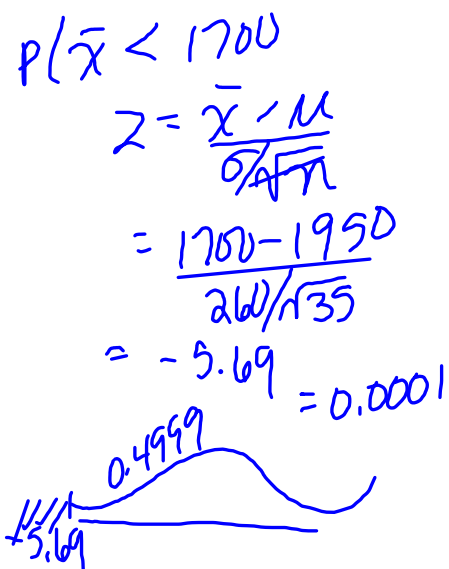 P(x̄ < 1700
Z = x̄ - μ
σ/√n
= 1700 - 1950
260/√35
= -5.69
= 0.0001
0.4999
-5.69